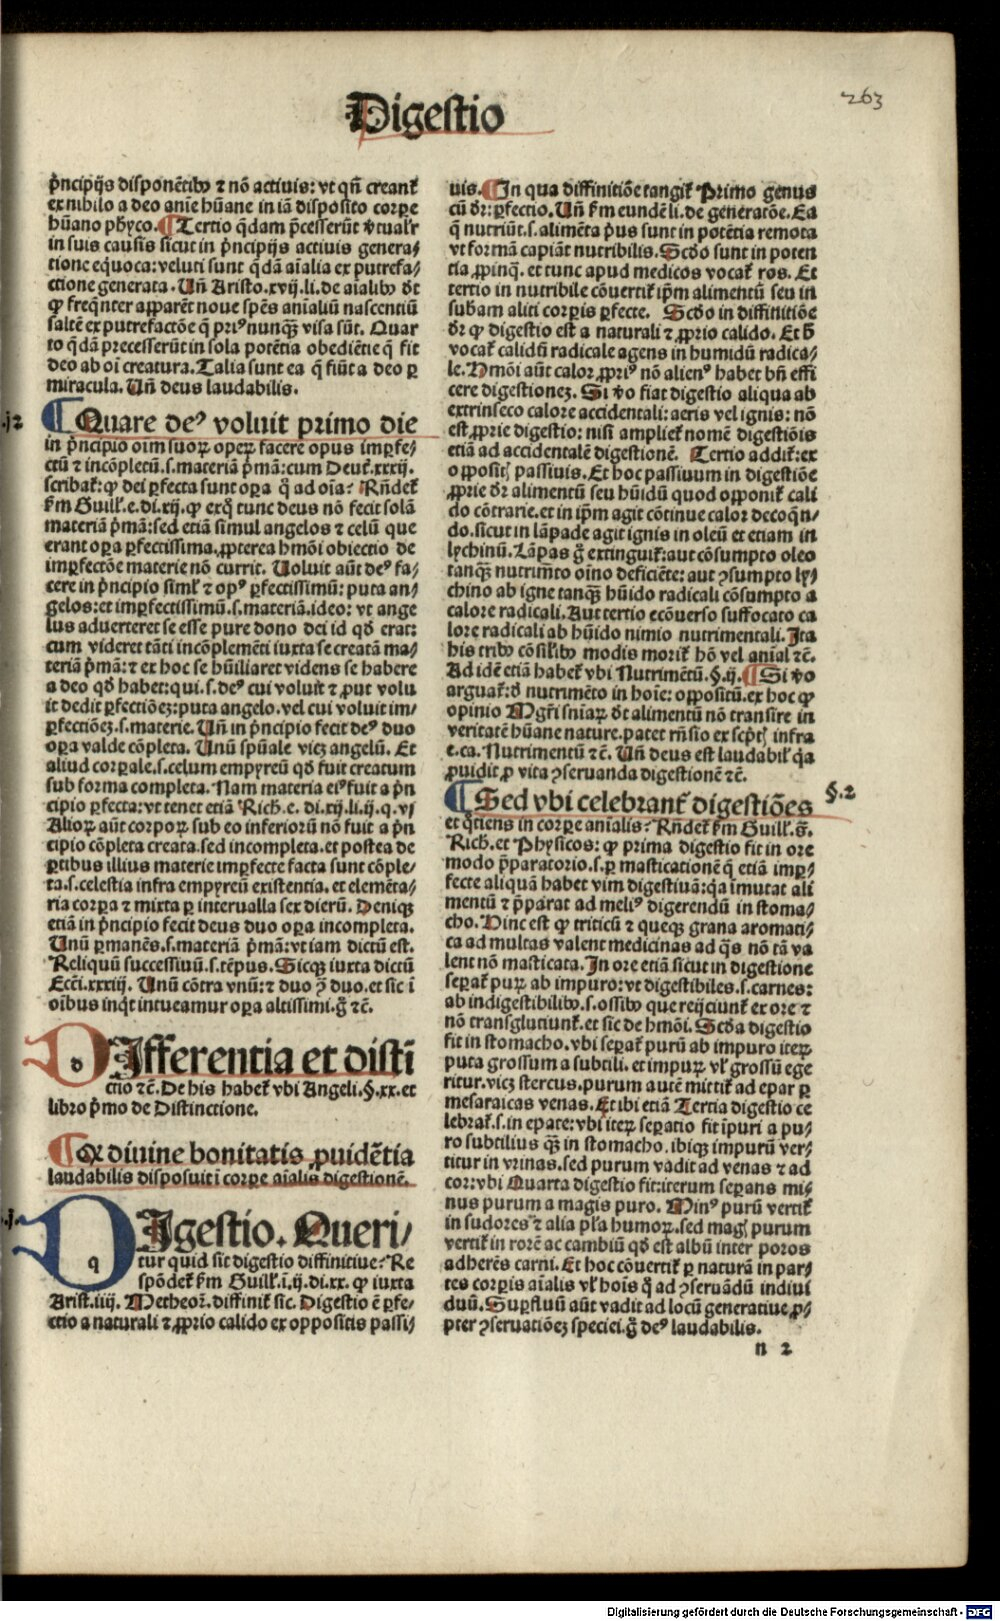 263
Digestio
p̄ncipijs disponētibꝰ ⁊ nō actiuis: vt qn̄ creant̄
ex nihilo a deo anīe hūane in iā disposito corꝑe
hūano phyco. ¶ Tertio q̄dam p̄cesserūt v̄tualr̄
in suis causis sicut in p̄ncipijs actiuis genera/
tione equoca: veluti sunt q̄dā aīalia ex putrefa/
ctione generata. Un̄ Aristo. xvij. li. de aīalibꝰ dt̄
ꝙ freqn̄ter apparēt noue spēs anīaliū nascentiū
saltē ex putrefactōe q̄ priꝰ nunqꝫ visa sūt. Quar
to q̄dā precesserūt in sola potētia obediētie q̄ fit
deo ab oī creatura. Talia sunt ea q̄ fiūt a deo ꝑ
miracula. Un̄ deus laudabilis.
.j2
¶ Quare deꝰ voluit primo die
in p̄ncipio oīm suoꝝ opeꝝ facere opus imꝑfe/
ctū ⁊ incōpletū. s. materiā p̄mā: cum Deut̄. xxxij.
scribat̄: ꝙ dei ꝑfecta sunt oꝑa q̄ ad oīa? Rn̄det̄
km̄ Guill̄. e. di. xij. ꝙ exq̄ tunc deus nō fecit solā
materiā p̄mā: sed etiā simul angelos ⁊ celū que
erant oꝑa ꝑfectissima, ꝓpterea hmōi obiectio de
imꝑfectōe materie nō currit. Uoluit aūt deꝰ fa/
cere in p̄ncipio siml̄ ⁊ opꝰ ꝑfectissimū: puta an/
gelos: et imꝑfectissimū. s. materiā. ideo: vt ange
lus aduerteret se esse pure dono dei id qd̄ erat:
cum videret tāti incōplemēti iuxta se creatā ma/
teriā p̄mā: ⁊ ex hoc se hūiliaret videns se habere
a deo qd̄ habet: qui. s. deꝰ cui voluit ⁊ ꝓut volu
it dedit ꝑfectiōeꝫ: puta angelo. vel cui voluit im/
ꝑfectiōeꝫ. s. materie. Un̄ in p̄ncipio fecit deꝰ duo
oꝑa valde cōpleta. Unū spūale vicꝫ angelū. Et
aliud corꝑale. s. celum empyreū qd̄ fuit creatum
sub forma completa. Nam materia eiꝰ fuit a p̄n
cipio ꝑfecta: vt tenet etiā Rich. e. di. xij. li. ij. q. vj
Alioꝝ aūt corpoꝝ sub eo inferiorū nō fuit a p̄n
cipio cōpleta creata. sed incompleta. et postea de
ꝑtibus illius materie imꝑfecte facta sunt cōple/
ta. s. celestia infra empyreū existentia. et elemēta/
ria corꝑa ⁊ mixta ꝑ interualla sex dierū. Deniqꝫ
etiā in p̄ncipio fecit deus duo oꝑa incompleta.
Unū ꝑmanēs. s. materiā p̄mā: vt iam dictū est.
Reliquū successiuū. s. tēpus. Sicqꝫ iuxta dictū
Ecc̄i. xxxiij. Unū cōtra vnū: ⁊ duo ꝯ̄ duo. et sic ī
oībus inq̄t intueamur oꝑa altissimi. ḡ ⁊c̄.
DIfferentia et disti
ctio ⁊c̄. De his habet̄ vbi Angeli. §. xx. et
libro p̄mo de Distinctione.
¶ Ex diuine bonitatis ꝓuidētia
laudabilis disposuit ī corꝑe aīalis digestionē.
.j.
DIgestio. Queri/
tur quid sit digestio diffinitiue? Re
spōdet̄ km̄ Guill̄. ī. ij. di. xx. ꝙ iuxta
Arist. iiij. Metheoꝝ. diffinit̄ sic. Digestio ē ꝑfe/
ctio a naturali ⁊ ꝓprio calido ex oppositis passi/
uis. ¶ In qua diffinitiōe tangit̄ Primo genus
cū dr̄: ꝑfectio. Un̄ km̄ eundē li. de generatōe. Ea
q̄ nutriūt. s. alimēta p̄us sunt in potētia remota
vt formā capiāt nutribilis. Scd̄o sunt in poten
tia ꝓpinq̄. et tunc apud medicos vocat̄ ros. Et
tertio in nutribile cōuertit̄ ip̄m alimentū seu in
subam aliti corꝑis ꝑfecte. Scd̄o in diffinitiōe
dr̄ ꝙ digestio est a naturali ⁊ ꝓprio calido. Et h̄
vocat̄ calidū radicale agens in humidū radica/
le. Hmōi aūt calor ꝓpriꝰ nō alienꝰ habet bn̄ effi
cere digestionez. Si v̄o fiat digestio aliqua ab
extrinseco calore accidentali: aeris vel ignis: nō
est ꝓprie digestio: nisi ampliet̄ nomē digestiōis
etiā ad accidentalē digestionē. Tertio addit̄: ex
oppositꝭ passiuis. Et hoc passiuum in digestiōe
ꝓprie dr̄ alimentū seu hūidū quod opponit̄ cali
do cōtrarie. et in ip̄m agit cōtinue calor decoqn̄/
do. sicut in lāpade agit ignis in oleū et etiam in
lychinū. Lāpas ḡ extinguit̄: aut cōsumpto oleo
tanqꝫ nutrimēto oīno deficiēte: aut ꝯsumpto ly/
chino ab igne tanqꝫ hūido radicali cōsumpto a
calore radicali. Aut tertio ecōuerso suffocato ca
lore radicali ab hūido nimio nutrimentali. Ita
his tribꝰ cōsil̄ibꝰ modis morit̄ hō vel anīal ⁊c̄.
Ad idē etiā habet̄ vbi Nutrimētū. §. ij. ¶ Si v̄o
arguat̄: d̄ nutrimēto in hoīe: oppositū. ex hoc ꝙ
opinio Mgr̄i snīaꝝ dt̄ alimentū nō transire in
veritatē hūane nature. patet rn̄sio ex sc̄ptꝭ infra
e. ca. Nutrimentū ⁊c̄. Un̄ deus est laudabil̄ q̄a
ꝓuidit ꝓ vita ꝯseruanda digestionē ⁊c̄.
§. 2
¶ Sed vbi celebrant̄ digestiōes
et q̄tiens in corꝑe anīalis? Rn̄det̄ km̄ Guill̄. ḡ.
Rich. et Physicos: ꝙ prima digestio fit in ore
modo p̄paratorio. s. ꝑ masticationē q̄ etiā imꝑ/
fecte aliquā habet vim digestiuā: q̄a īmutat ali
mentū ⁊ p̄parat ad meliꝰ digerendū in stoma/
cho. Hinc est ꝙ triticū ⁊ queqꝫ grana aromati/
ca ad multas valent medicinas ad q̄s nō tā va
lent nō masticata. In ore etiā sicut in digestione
seꝑat̄ puꝝ ab impuro: vt digestibiles. s. carnes:
ab indigestibilibꝰ. s. ossibꝰ que reijciunt̄ ex ore ⁊
nō transglutiunt̄. et sic de hmōi. Scd̄a digestio
fit in stomacho. vbi seꝑat̄ purū ab impuro iteꝝ
puta grossum a subtili. et impuꝝ vl̄ grossū ege
ritur. vicꝫ stercus. purum autē mittit̄ ad epar ꝑ
mesaraicas venas. Et ibi etiā Tertia digestio ce
lebrat̄. s. in epate: vbi iteꝝ seꝑatio fit īpuri a pu/
ro subtilius qꝫ in stomacho. ibiqꝫ impurū ver/
titur in vrinas. sed purum vadit ad venas ⁊ ad
cor: vbi Quarta digestio fit: iterum seꝑans mi/
nus purum a magis puro. Minꝰ purū vertit̄
in sudores ⁊ alia pl̄a humoꝝ. sed magꝭ purum
vertit̄ in rorē ac cambiū qd̄ est albū inter poros
adherēs carni. Et hoc cōuertit̄ ꝑ naturā in par/
tes corꝑis aīalis vl̄ hoīs q̄ ad ꝯseruādū indiui
duū. Suꝑfluū aūt vadit ad locū generatiue, ꝓ/
pter ꝯseruatiōeꝫ speciei. ḡ deꝰ laudabilis.
n 2
Digitalisierung gefördert durch die Deutsche Forschungsgemeinschaft - DFG